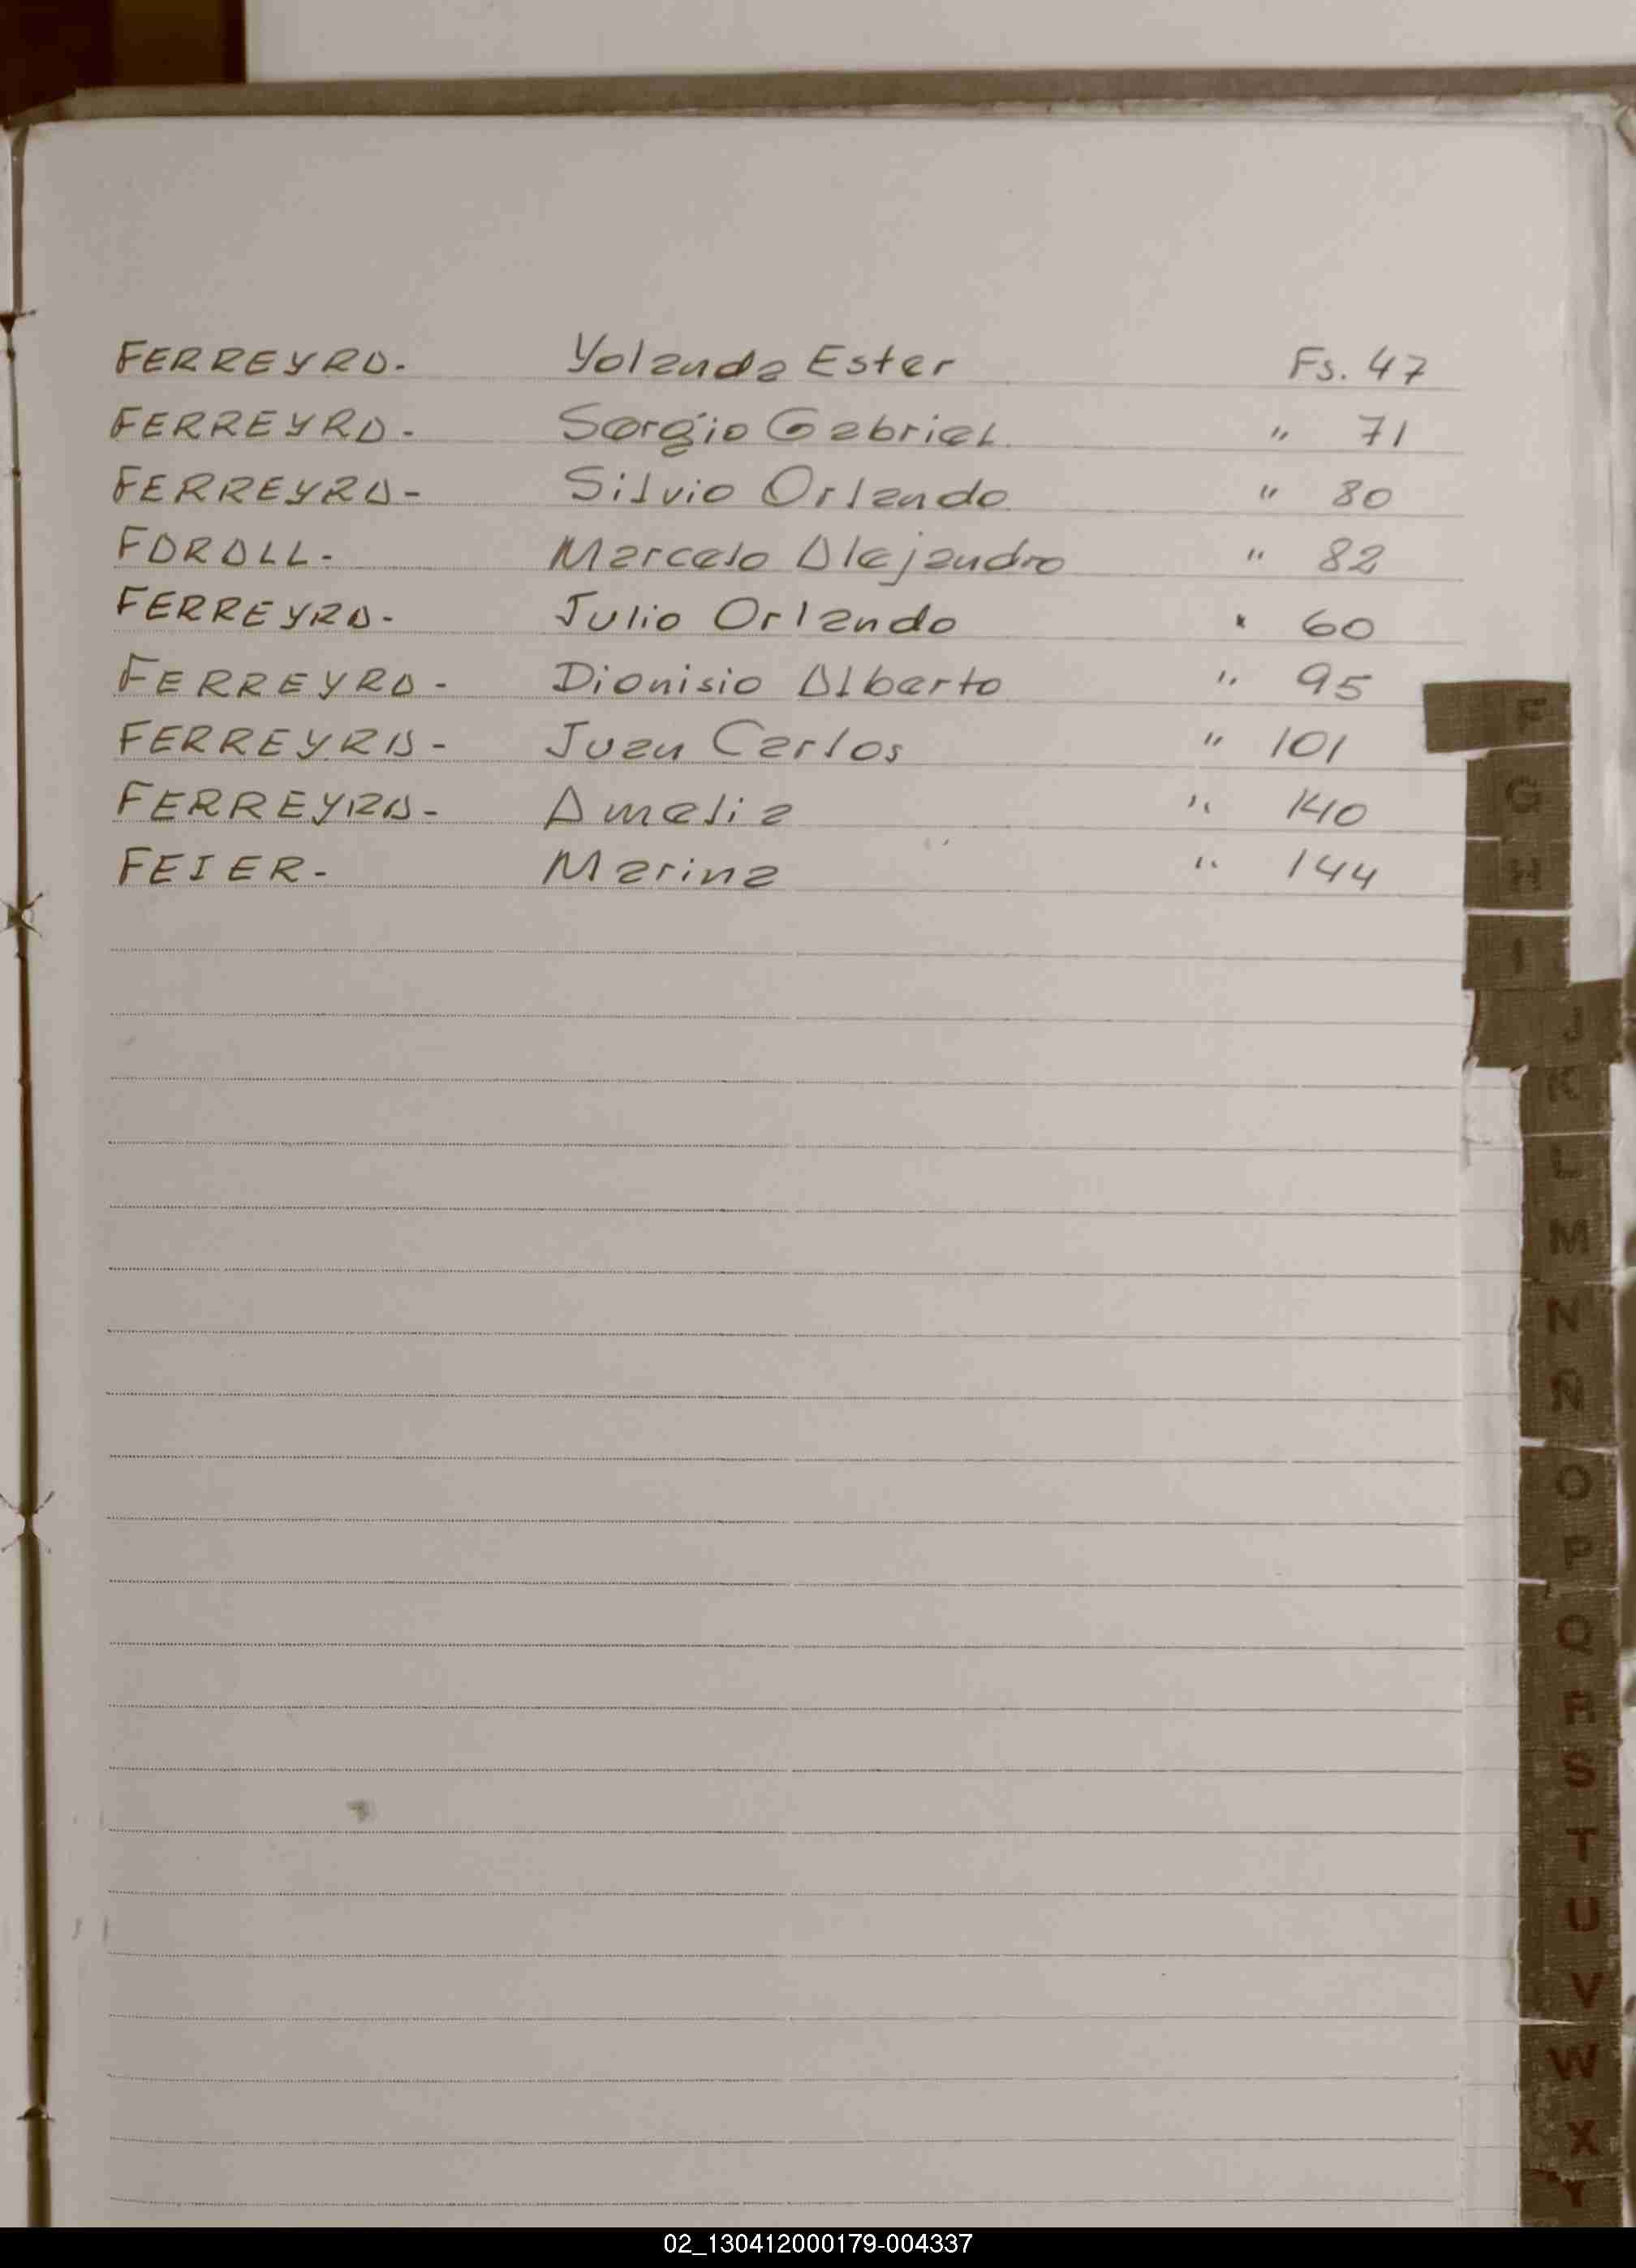 FERREYRA- Yolanda Ester Fs. 47
FERREYRA- Sergio Gabriel. " 71
FERREYRA- Silvio Orlando " 80
FAROLL- Marcelo Alejandro " 82
FERREYRA- Julio Orlando " 60
FERREYRA- Dionisio Alberto " 95
FERREYRA- Juan Carlos " 101
FERREYRA- Amelia " 140
FEIER- Marina " 144
F
G
H
I
J
K
L
M
N
Ñ
O
P
Q
R
S
T
U
V
W
X
Y
02_130412000179-004337